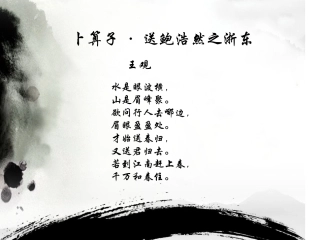 卜算子 · 送鲍浩然之浙东
王观
水是眼波横，
山是眉峰聚。
欲问行人去哪边，
眉眼盈盈处。
才始送春归，
又送君归去。
若到江南赶上春，
千万和春住。